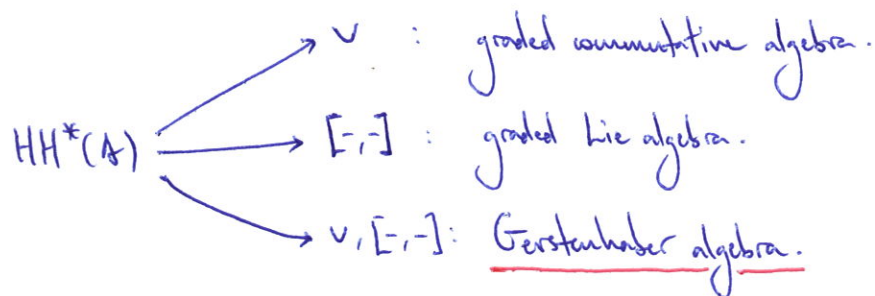 ∪ : graded commutative algebra.
HH*(A) [-,-] : graded Lie algebra.
∪, [-,-] : Gerstenhaber algebra.